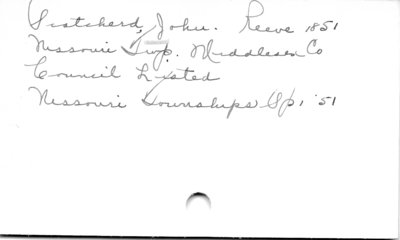 Scatcherd, John. Reeve 1851
Missouri Twp. Middlesex Co
Council Listed
Missouri Townships Sp 1 '51